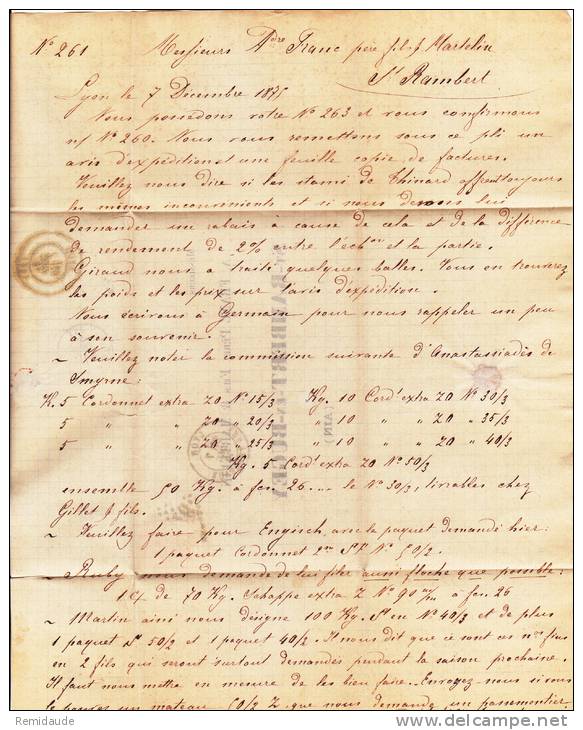 N° 261 Messieurs Adre Franc père fils & Martelin
St Rambert
Lyon le 7 Décembre 1875
Nous possedons votre N° 263 et vous confirmons
n/ N° 260. Nous vous remettons sous ce pli un
avis d'expédition et une feuille copie de factures.
Veuillez nous dire si les stami de Thinard offrent toujours
les mêmes inconvenients et si nous devons lui
demander un rabais à cause de cela et de la différence
de rendement de 2% entre l'échon et la partie.
Giraud nous a traité quelques balles. Vous en trouverez
les poids et les prix sur l'avis d'expédition.
Nous écrivons à Germain pour nous rappeler un peu
à son souvenir.
~ Veuillez noter la commission suivante d'Anastassiadès de
Smyrne:
K. 5 Cordonnet extra Z0 N° 15/3 Kg. 10 Cordt extra Z0 N° 30/3
5 " " Z0 " 20/3 " 10 " " Z0 " 35/3
5 " " Z0 " 25/3 " 10 " " Z0 " 40/3
Kg. 5 Cordt extra Z0 N° 50/3
ensemble 50 Kg. à fcs. 26 .... le N° 30/3, livrables chez
Gillet & fils.
~ Veuillez faire pour Engisch, avec le paquet demandé hier:
1 paquet Cordonnet N° 50/2.
~ Ruby nous demande de lui filer aussi floche que possible.
1 C/ de 70 Kg. Schappe extra Z N° 90 à fcs. 26
~ Martin ainé nous désigne 100 Kg. St en N° 40/3 et de plus
1 paquet St 50/2 et 1 paquet 40/2. Il nous dit que ce sont ces nos fins
en 2 fils qui seront surtout demandés pendant la saison prochaine.
Il faut nous mettre en mesure de les bien faire. Envoyez-nous si vous
le pouvez un mateau 50/2 Z. que nous demande un passementier.
ST RAMBERT-EN-BUGEY
(AIN)
Remidaude
www.delcampe.net